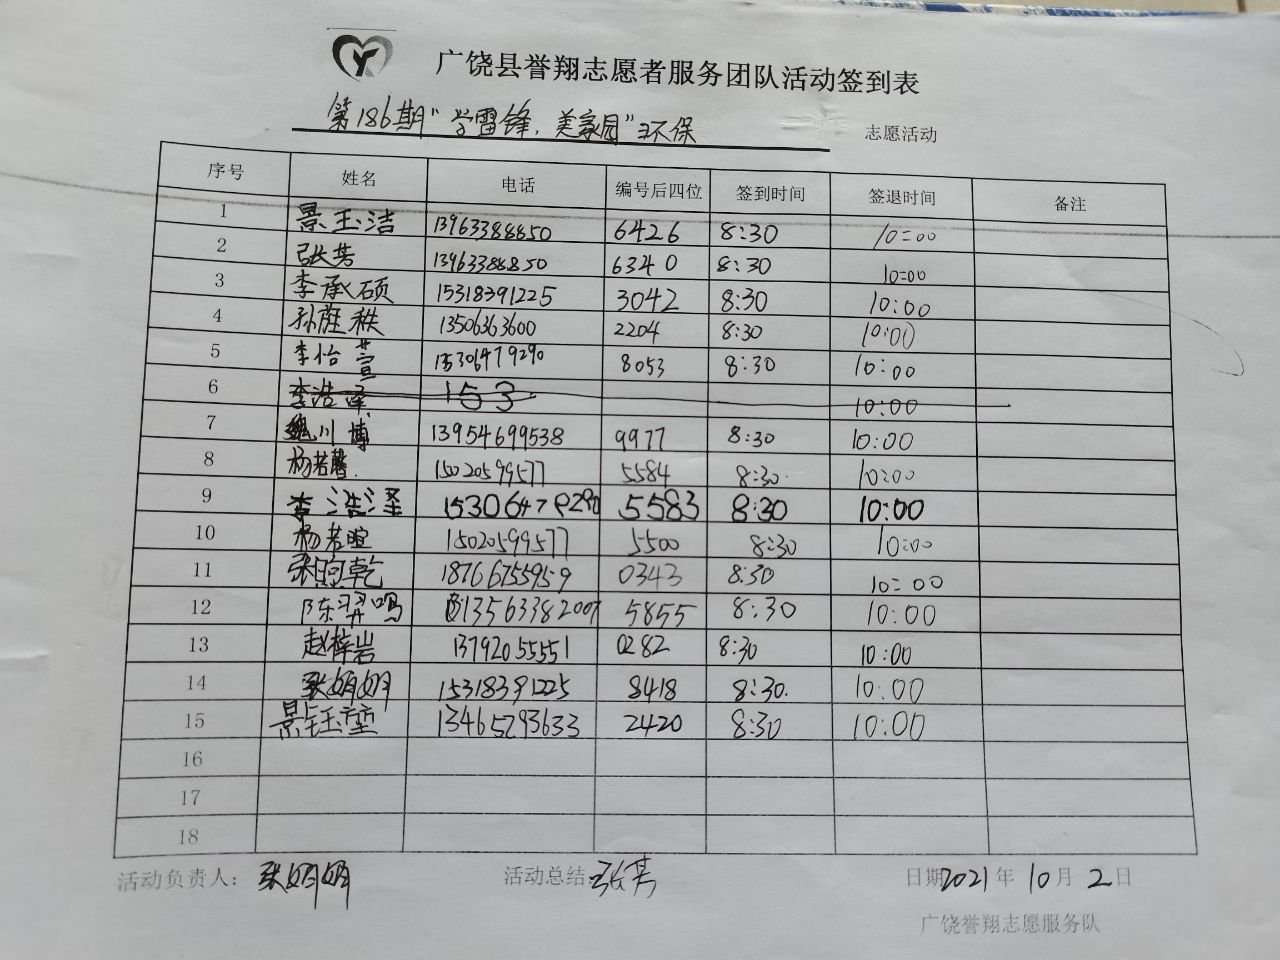 广饶县誉翔志愿者服务团队活动签到表
第186期"学雷锋,美家园"环保 志愿活动
序号 姓名 电话 编号后四位 签到时间 签退时间 备注
1 景玉洁 13963388850 6426 8:30 10:00
2 张芳 13963388850 6340 8:30 10:00
3 李承硕 15318391225 3042 8:30 10:00
4 孙 秩 13506363600 2204 8:30 10:00
5 李怡萱 15306479290 8053 8:30 10:00
6 李浩泽 153 10:00
7 魏川博 13954699538 9977 8:30 10:00
8 杨若馨 15020599577 5584 8:30 10:00
9 李浩泽 15306479290 5583 8:30 10:00
10 杨若暄 15020599577 5500 8:30 10:00
11 张煦乾 18766755959 0343 8:30 10:00
12 陈羿鸣 13563382007 5855 8:30 10:00
13 赵梓岩 13792055551 0282 8:30 10:00
14 张娟娟 15318391225 8418 8:30 10:00
15 景钰 13465293633 2420 8:30 10:00
16
17
18
活动负责人: 张娟娟 活动总结: 张芳 日期2021年10月2日
广饶誉翔志愿服务队